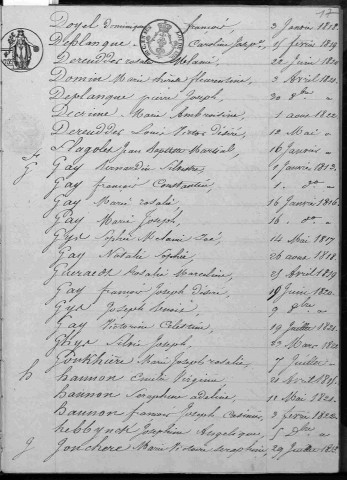 17
Doyel dominique françois, 3 Janvier 1818.
Deblangue, Caroline Joseph. 15 février 1819.
Dereuddre rosalie Melanie, 22 Juin 1820.
Domice Marie thérèse florentine, 2 Avril 1820.
Deplanque pierre Joseph, 30 8bre "
Decrime, Marie Ambroisine, 1 aout 1822.
Dereuddre Louis Victor Désiré, 12 Mai "
f Flagolée Jean Baptiste Martial, 16 Janvier "
G Gay Bernardin Silvestre, 1 Janvier 1813.
Gay françois Constantin, 1. do "
Gay Marie rosalie, 16 Janvier 1816.
Gay Marie Joseph, 16. do "
Gys Sophie Melanie Zoé, 14 Mai 1817
Gay Natalie Sophie, 26 aout 1818.
Gueraert Natalie Marceline, 25 Avril 1819.
Gay françois Joseph Désiré, 19 Juin 1820.
Gys Joseph Benoit, 9 Dbre "
Gay Victorine Célestine, 19 Juillet 1821.
Ghys Silvie Joseph, 22 Mars 1822.
Gonkhière Marie Joseph rosalie, 7 Juillet "
h hannon Emilie Virginie, 20 Avril 1815.
hannon Seraphine adeline, 10 Mai 1820.
hannon françois Joseph Casimir, 2 février 1822.
hebbynck Josephine Angelique, 5 Dbre "
g Jonchere Marie Victoire Seraphine, 29 Juillet 1822